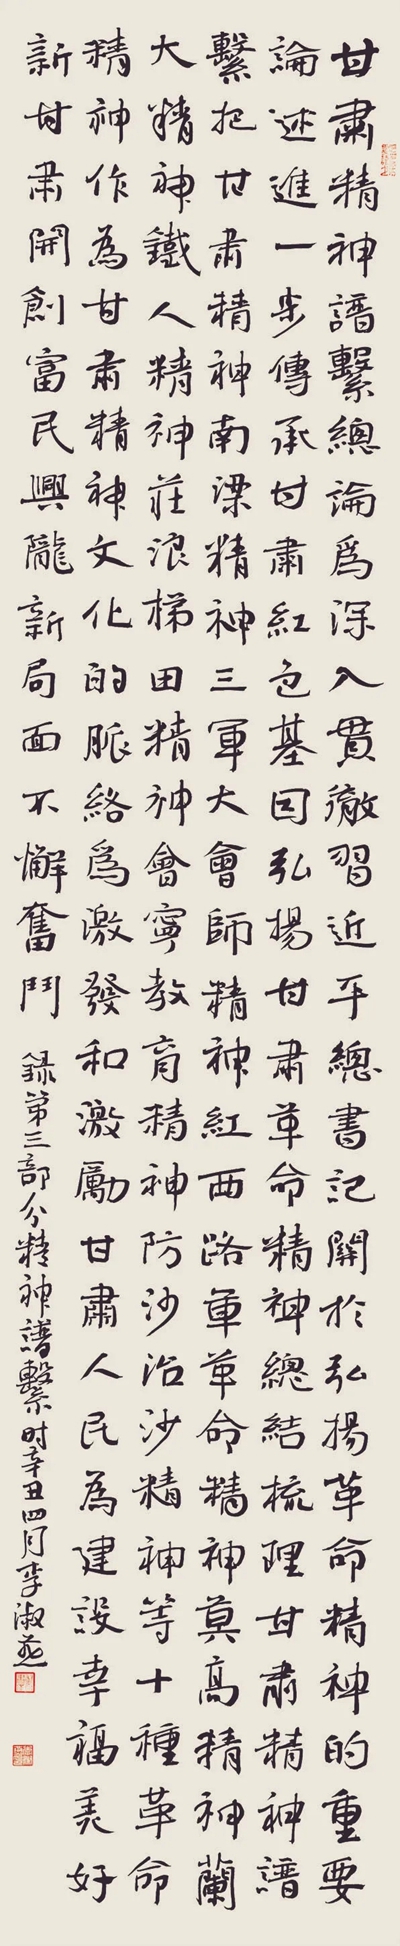 甘肅精神譜繫總論爲深入貫徹習近平總書記關於弘揚革命精神的重要
論述進一步傳承甘肅紅色基因弘揚甘肅革命精神總結梳理甘肅精神譜
繫把甘肅精神南梁精神三軍大會師精神紅西路軍革命精神莫高精神蘭
大精神鐵人精神莊浪梯田精神會寧教育精神防沙治沙精神等十種革命
精神作為甘肅精神文化的脈絡爲激發和激勵甘肅人民為建設幸福美好
新甘肅開創富民興隴新局面不懈奮鬥 録第三部分精神譜繫时辛丑四月李淑燕